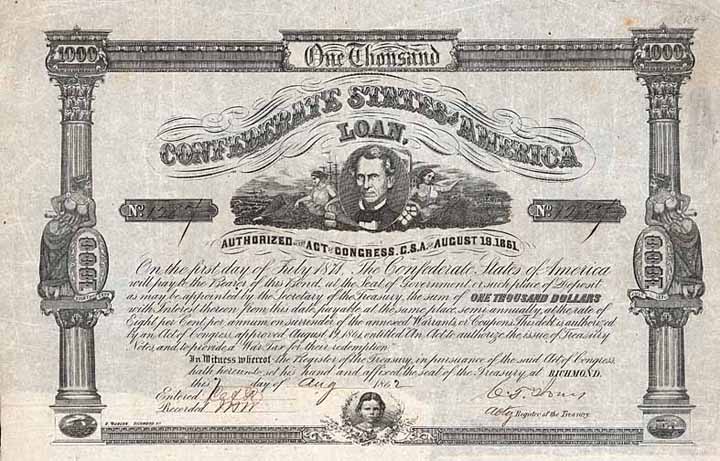 1000 One Thousand 1000
CONFEDERATE STATES OF AMERICA
LOAN,
No. No.
AUTHORIZED BY THE ACT OF CONGRESS, C.S.A. OF AUGUST 19, 1861.
On the first day of July 1871, The Confederate States of America
will pay to the Bearer of this Bond, at the seat of Government, or such place of Deposit
as may be appointed by the Secretary of the Treasury, the sum of ONE THOUSAND DOLLARS
with Interest thereon from this date, payable at the same place semi-annually, at the rate of
Eight per Cent per annum, on surrender of the annexed Warrants, or Coupons. This debt is authorized
by an Act of Congress, approved August 19, 1861, entitled An Act to authorize the issue of Treasury
Notes, and to provide a War Tax for their redemption.
In Witness whereof the Register of the Treasury, in pursuance of the said Act of Congress,
hath hereunto set his hand and affixed the seal of the Treasury, at RICHMOND,
this day of Aug 1862
Entered
Recorded
Register of the Treasury
RICHMOND